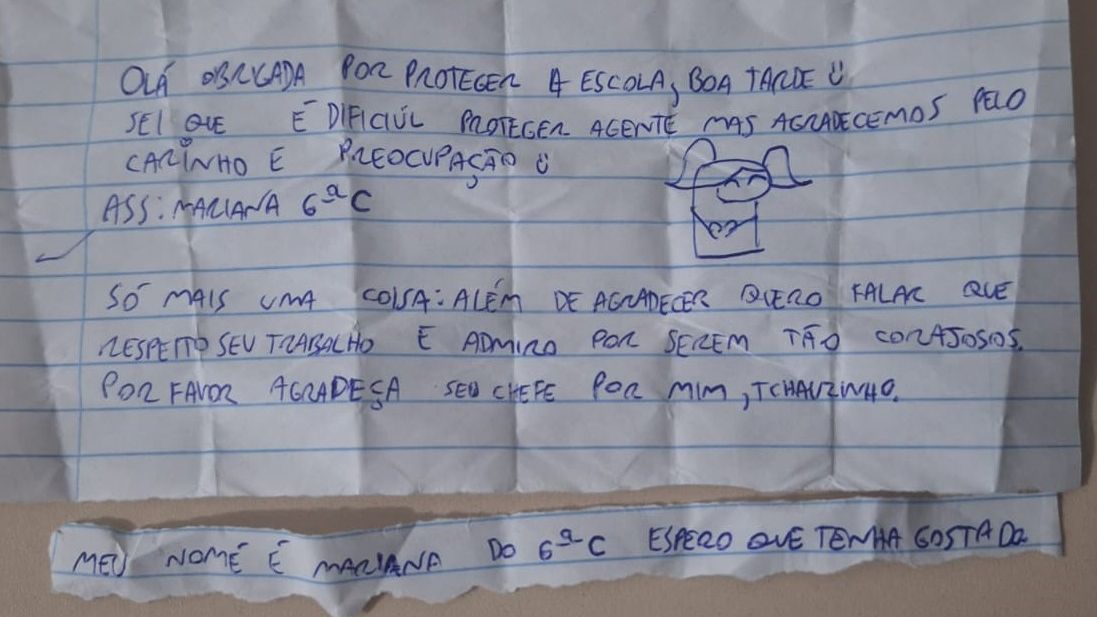 OLÁ OBRIGADA POR PROTEGER A ESCOLA, BOA TARDE
SEI QUE É DIFICIÚL PROTEGER AGENTE MAS AGRADECEMOS PELO
CARINHO E PREOCUPAÇÃO
ASS: MARIANA 6ªC
SÓ MAIS UMA COISA: ALÉM DE AGRADECER QUERO FALAR QUE
RESPEITO SEU TRABALHO E ADMIRO POR SEREM TÃO CORAJOSIOS.
POR FAVOR AGRADEÇA SEU CHEFE POR MIM, TCHAUZINHO.
MEU NOMÉ É MARIANA DO 6ªC ESPERO QUE TENHA GOSTADO